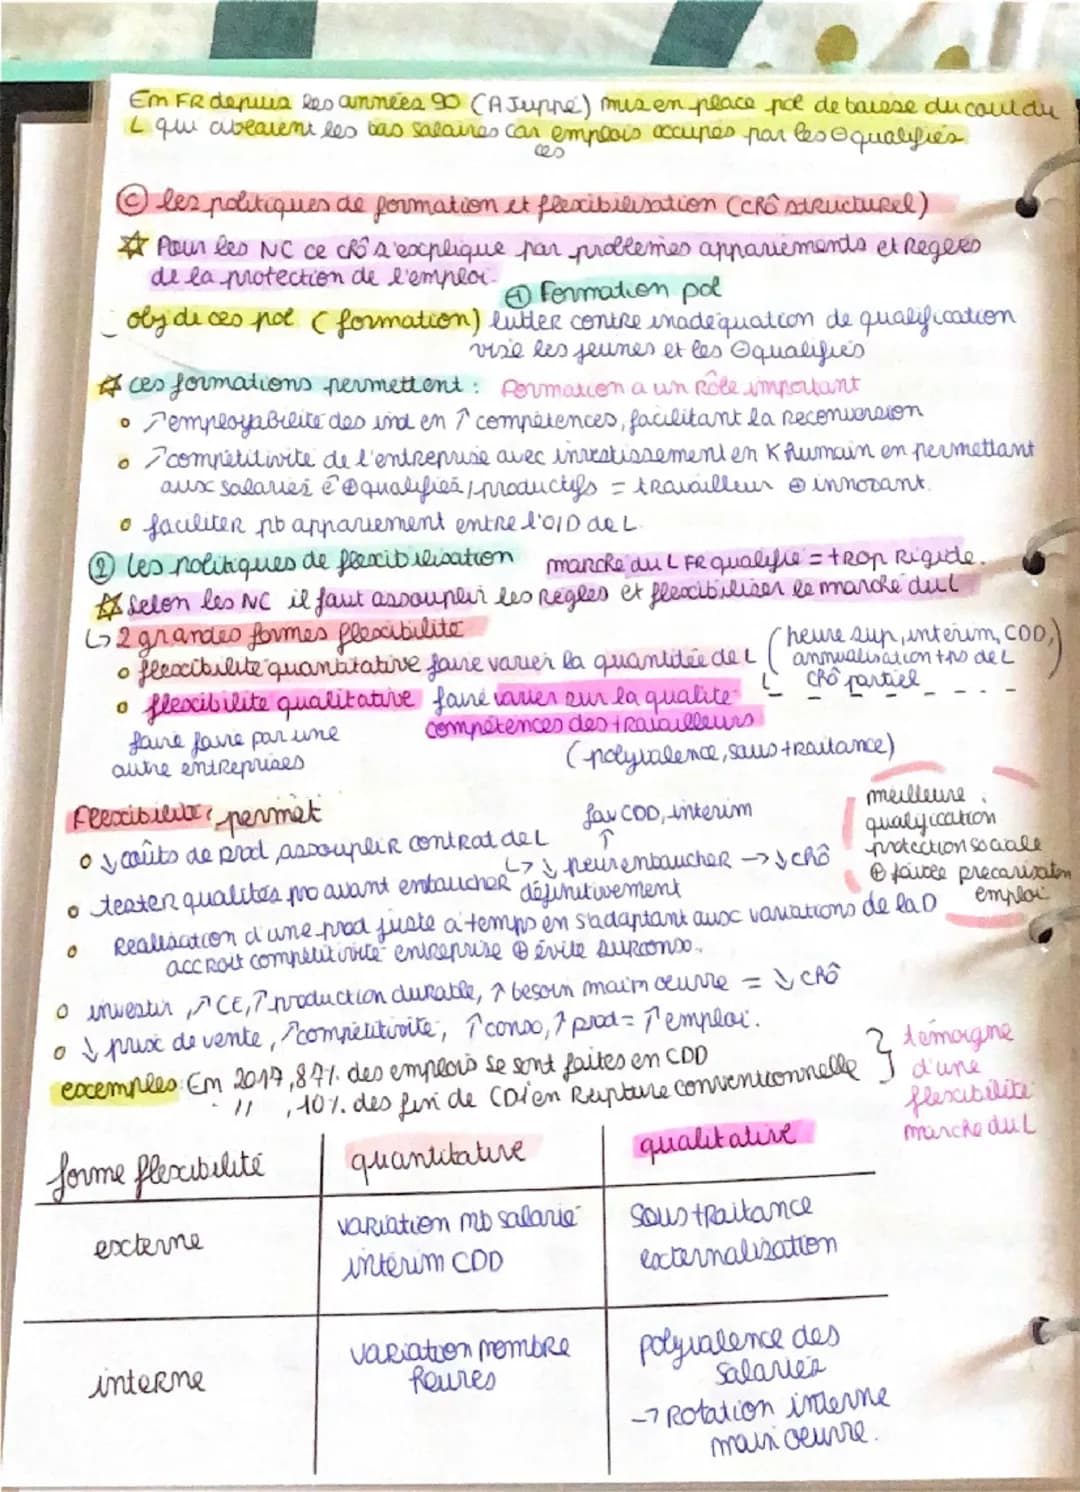 En FR depuis les années 90 (A Juppé) mis en place pol de baisse du cout du
L qui ciblaient les bas salaires car emplois occupés par les ⊖ qualifiés
ces
Ⓒ les politiques de formation et flexibilisation (CRÔ structurel)
☆ Pour les NC ce CRÔ s'explique par problèmes appariements et Regles
de la protection de l'emploi.
① Formation pol
obj de ces pol (formation) lutter contre inadéquation de qualification
vise les jeunes et les ⊖ qualifiés
☆ ces formations permettent : Formation a un Rôle important
o ↗ employabilité des ind en ↑ compétences, facilitant la reconversion
o ↗ compétitivité de l'entreprise avec investissement en K humain en permettant
aux salariés ê ⊕ qualifiés / productifs = travailleur ⊕ innovant.
o faciliter pb appariement entre l'O/D de L.
② les politiques de flexibilisation marché du L FR qualifié = trop Rigide.
☆ Selon les NC il faut assouplir les Règles et flexibiliser le marché du L
↳ 2 grandes formes flexibilité
o flexibilité quantitative faire varier la quantitée de L (heure sup, interim, CDD,
annualisation tps de L
CRÔ partiel)
o flexibilité qualitative faire varier sur la qualité
compétences des travailleurs
faire faire par une
autre entreprises
(polyvalence, sous traitance)
Flexibilité : permet
fav CDD, interim
↑
o ↓ coûts de prod, assouplir contrat de L
↳ ↓ peur embaucher → ↓ chô
o tester qualités pro avant embaucher définitivement
o Réalisation d'une prod juste à temps en s'adaptant aux variations de la D
accroit compétitivité entreprise ⊕ évite surconso.
meilleure
qualification
protection sociale
⊕ faible precarisation
emploi
o investir, ↗ CE, ↑ production durable, ↗ besoin main oeuvre = ↓ CRÔ
o ↓ prix de vente, ↗ compétitivité, ↑ conso, ↑ prod = ↑ emploi.
exemples : En 2017, 87% des emplois se sont faites en CDD
" , 10% des fin de CDI en Rupture conventionnelle
témoigne
d'une
flexibilité
marché du L
forme flexibilité quantitative qualitative
externe
variation nb salarié
interim CDD
Sous traitance
externalisation
interne
variation nombre
heures
polyvalence des
salariés
→ Rotation interne
main oeuvre.